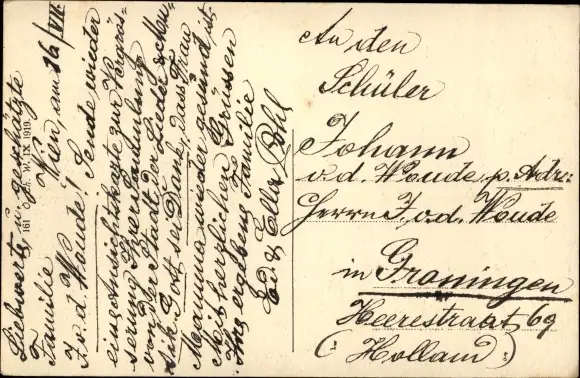 Liebwerte, u. geschätzte
Familie Wien, am 26/VII.
J. v. d. Woude! Sende wieder
eine Ansichtskarte zur Vergrös-
serung Ihrer Sammlung
von der Stadt der Lieder & Mu-
sik. Gott sei Dank, dass Frau
Mamma wieder gesund ist.
Mit herzlichen Grüssen
Ihre ergebene Familie
E. & Ella Pohl
161 W. IX. 1919.
An den
Schüler
Johann
v. d. Woude p. Adr.:
Herrn J. v. d. Woude
in Groningen
Heerestraat 69
(: Holland :)